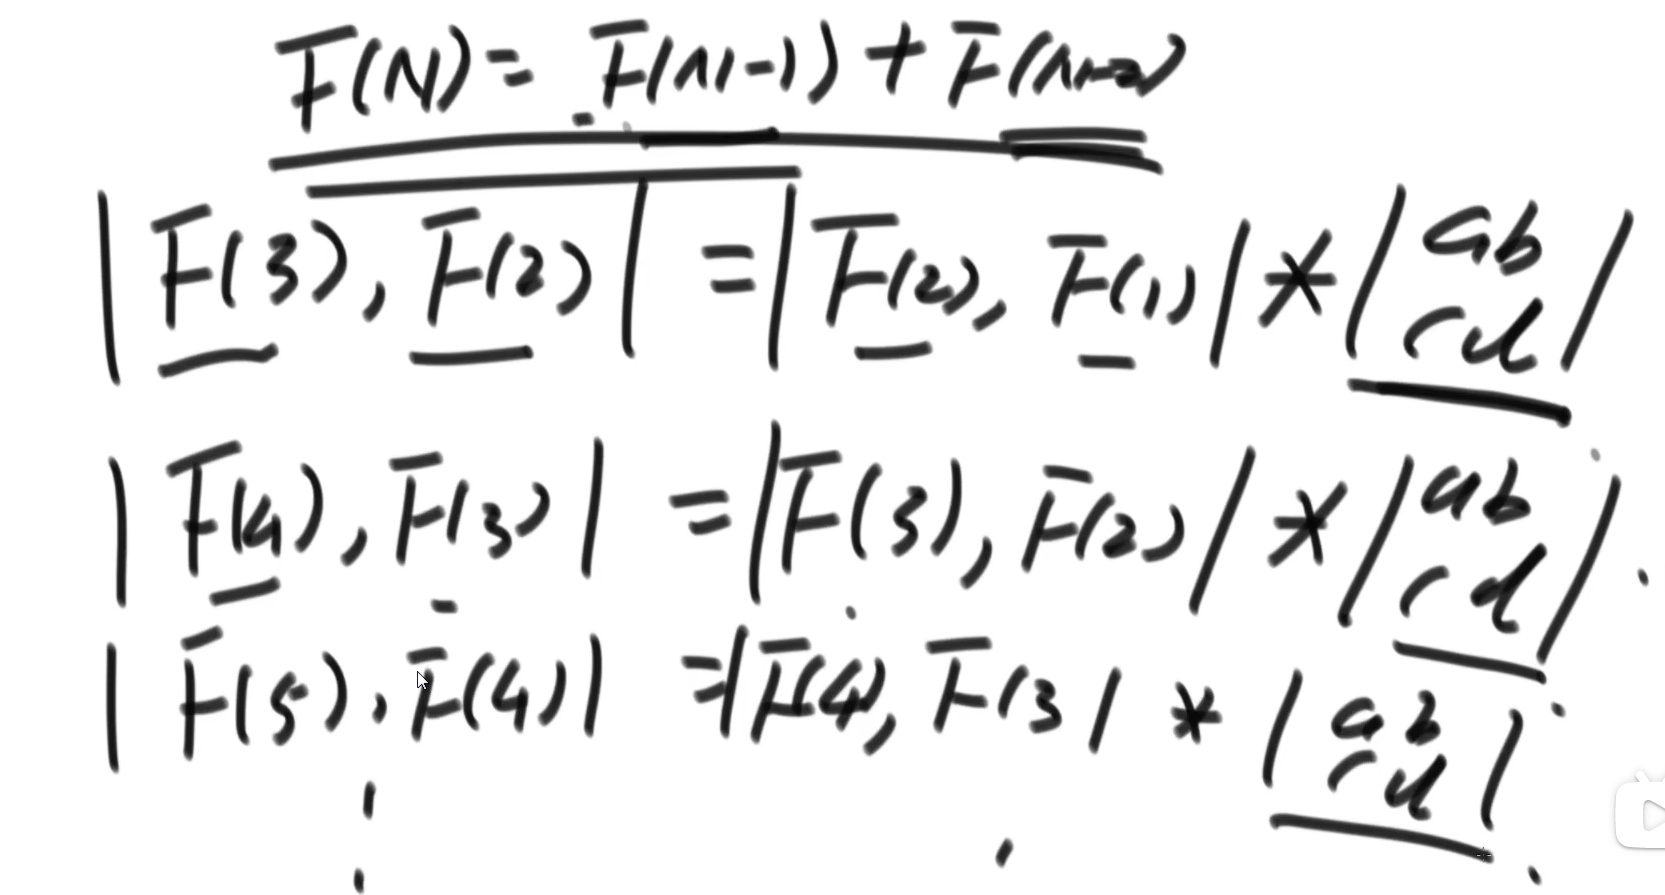 F(N) = F(N-1) + F(N-2)
| F(3), F(2) | = | F(2), F(1) | * | a b
c d |
| F(4), F(3) | = | F(3), F(2) | * | a b
c d |
| F(5), F(4) | = | F(4), F(3 | * | a b
c d |